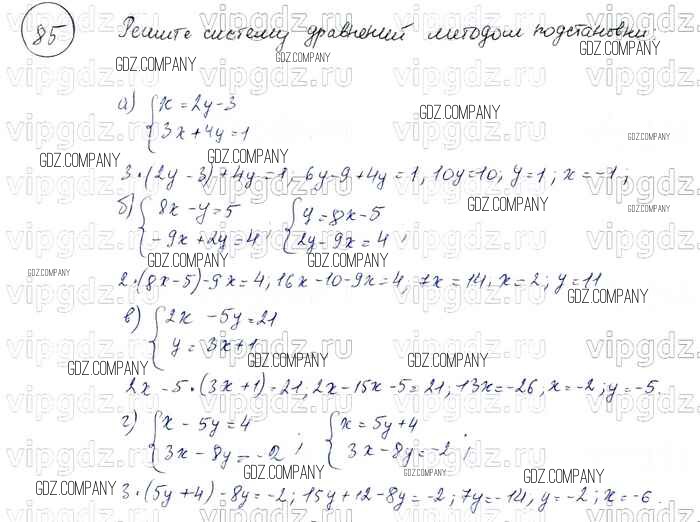 85 Решите систему уравнений методом подстановки.
а) { x = 2y - 3
{ 3x + 4y = 1
3·(2y - 3) + 4y = 1, 6y - 9 + 4y = 1, 10y = 10, y = 1; x = -1;
б) { 8x - y = 5 { y = 8x - 5
{ -9x + 2y = 4; { 2y - 9x = 4;
2·(8x - 5) - 9x = 4; 16x - 10 - 9x = 4; 7x = 14, x = 2; y = 11
в) { 2x - 5y = 21
{ y = 3x + 1
2x - 5·(3x + 1) = 21, 2x - 15x - 5 = 21, 13x = -26, x = -2; y = -5.
г) { x - 5y = 4 { x = 5y + 4
{ 3x - 8y = -2; { 3x - 8y = -2;
3·(5y + 4) - 8y = -2; 15y + 12 - 8y = -2; 7y = -14, y = -2; x = -6.
vipgdz.ru
GDZ.COMPANY